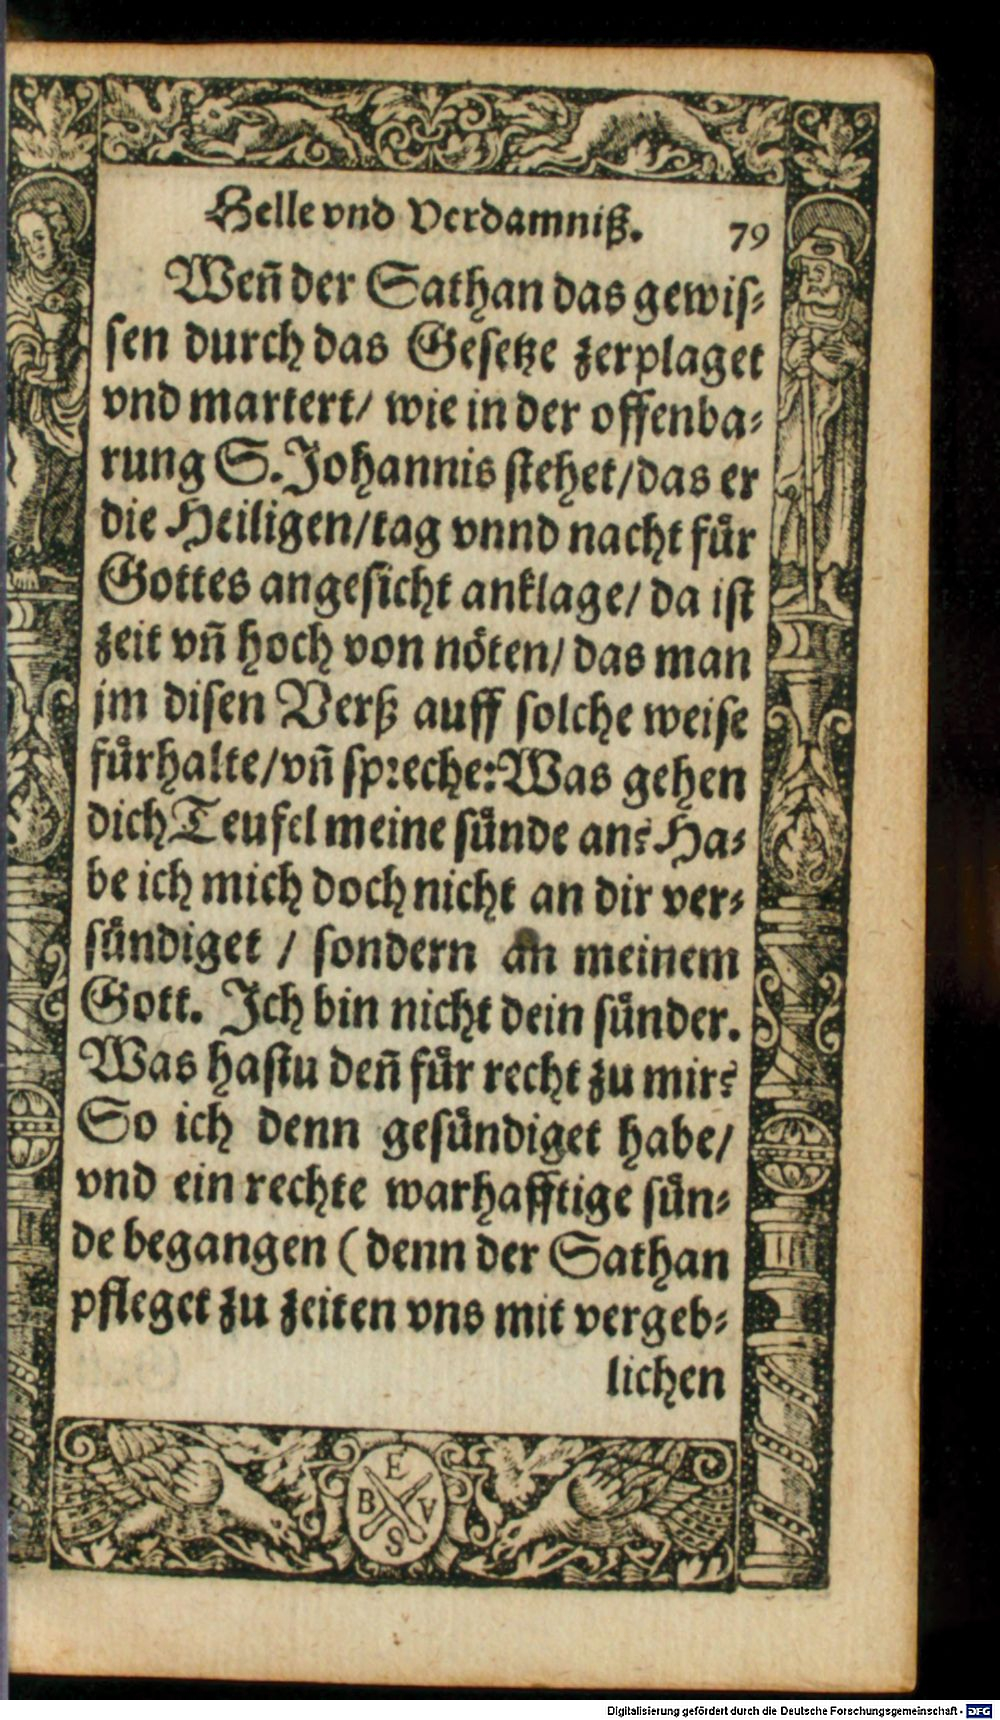 Helle vnd Verdamniß. 79
Weñ der Sathan das gewis⸗
sen durch das Gesetze zerplaget
vnd martert/ wie in der offenba⸗
rung S. Johannis stehet/ das er
die Heiligen/ tag vnnd nacht fuͤr
Gottes angesicht anklage/ da ist
zeit vñ hoch von noͤten/ das man
jm disen Verß auff solche weise
fuͤrhalte/ vñ spreche: Was gehen
dich Teufel meine suͤnde an? Ha⸗
be ich mich doch nicht an dir ver⸗
suͤndiget / sondern an meinem
Gott. Ich bin nicht dein suͤnder.
Was hastu deñ fuͤr recht zu mir?
So ich denn gesuͤndiget habe/
vnd ein rechte warhafftige suͤn⸗
de begangen (denn der Sathan
pfleget zu zeiten vns mit vergeb⸗
lichen
E
B V
S
Digitalisierung gefördert durch die Deutsche Forschungsgemeinschaft - DFG